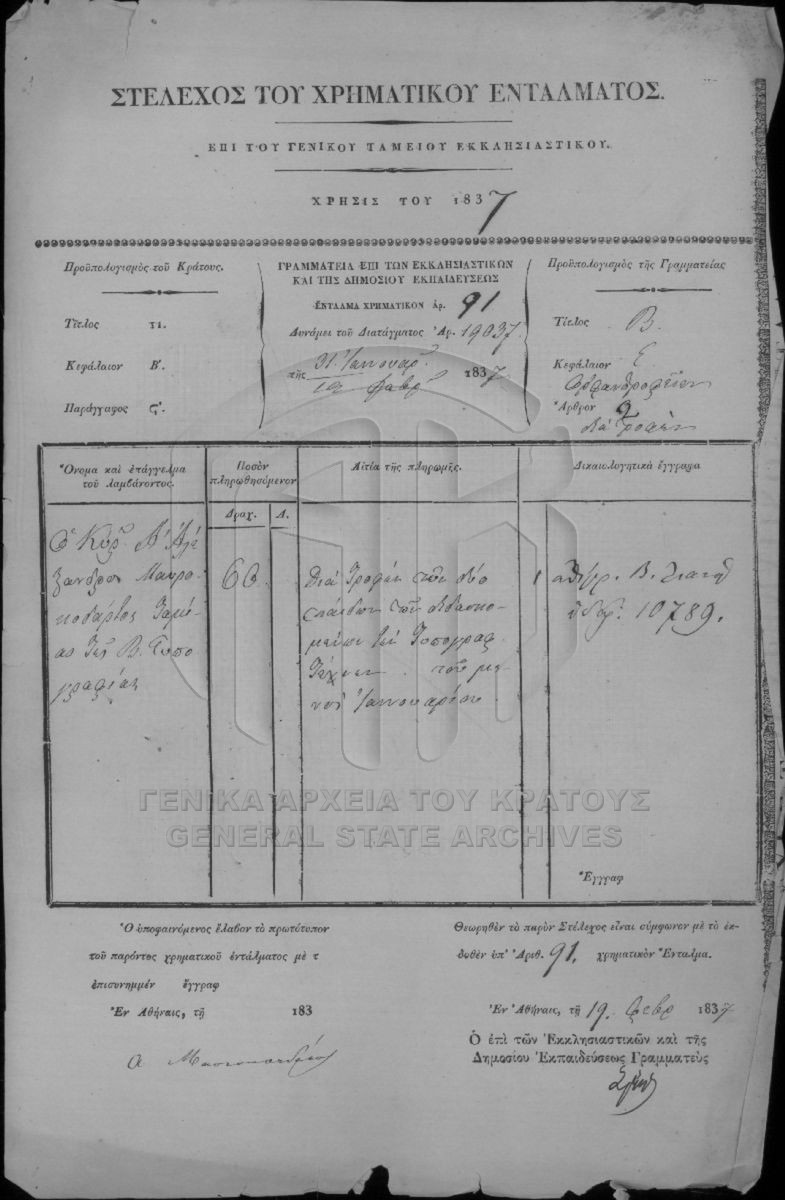 ΣΤΕΛΕΧΟΣ ΤΟΥ ΧΡΗΜΑΤΙΚΟΥ ΕΝΤΑΛΜΑΤΟΣ.
ΕΠΙ ΤΟΥ ΓΕΝΙΚΟΥ ΤΑΜΕΙΟΥ ΕΚΚΛΗΣΙΑΣΤΙΚΟΥ.
ΧΡΗΣΙΣ ΤΟΥ 1837
Προϋπολογισμὸς τοῦ Κράτους.
Τίτλος τι.
Κεφάλαιον Β'.
Παράγραφος ς'.
ΓΡΑΜΜΑΤΕΙΑ ΕΠΙ ΤΩΝ ΕΚΚΛΗΣΙΑΣΤΙΚΩΝ
ΚΑΙ ΤΗΣ ΔΗΜΟΣΙΟΥ ΕΚΠΑΙΔΕΥΣΕΩΣ
ΕΝΤΑΛΜΑ ΧΡΗΜΑΤΙΚΟΝ ἀρ. 91
Δυνάμει τοῦ Διατάγματος Ἀρ. 19037.
τῆς 31 Ἰαννουαρ.
19 φαβρ 1837
Προϋπολογισμὸς τῆς Γραμματείας
Τίτλος Β.
Κεφάλαιον Ε
Ὀρφανοτροφεῖον
Ἄρθρον 2
διὰ τροφὴν
Ὄνομα καὶ ἐπάγγελμα
τοῦ λαμβάνοντος.
Ποσὸν
πληρωθησόμενον
Δραχ. Λ.
Αἰτία τῆς πληρωμῆς.
Δικαιολογητικὰ ἔγγραφα
Ὁ Κύρ. Ἀλέ
ξανδρος Μαυρο
κορδάτος Ταμί
ας τῆς Β. Τυπο
γραφίας
60.
Διὰ τροφὴν τῶν δύο
παίδων τῶν διδασκο
μένων τὴν Τυπογραφ.
Τέχνην τοῦ μη
νὸς Ἰαννουαρίου.
1 ἀντίγρ. Β. Διαταγ
ὑπ' ἀρ. 10789.
Ἔγγραφ
ΓΕΝΙΚΑ ΑΡΧΕΙΑ ΤΟΥ ΚΡΑΤΟΥΣ
GENERAL STATE ARCHIVES
Ὁ ὑποφαινόμενος ἔλαβον τὸ πρωτότυπον
τοῦ παρόντος χρηματικοῦ ἐντάλματος μὲ τ
ἐπισυνημμέν ἔγγραφ
Ἐν Ἀθήναις, τῇ 183
Α
Θεωρηθὲν τὸ παρὸν Στέλεχος εἶναι σύμφωνον μὲ τὸ ἐκ-
δοθὲν ὑπ' Ἀριθ. 91. χρηματικὸν Ἔνταλμα.
Ἐν Ἀθήναις, τῇ 19. φεβρ 1837
Ὁ ἐπὶ τῶν Ἐκκλησιαστικῶν καὶ τῆς
Δημοσίου Ἐκπαιδεύσεως Γραμματεὺς